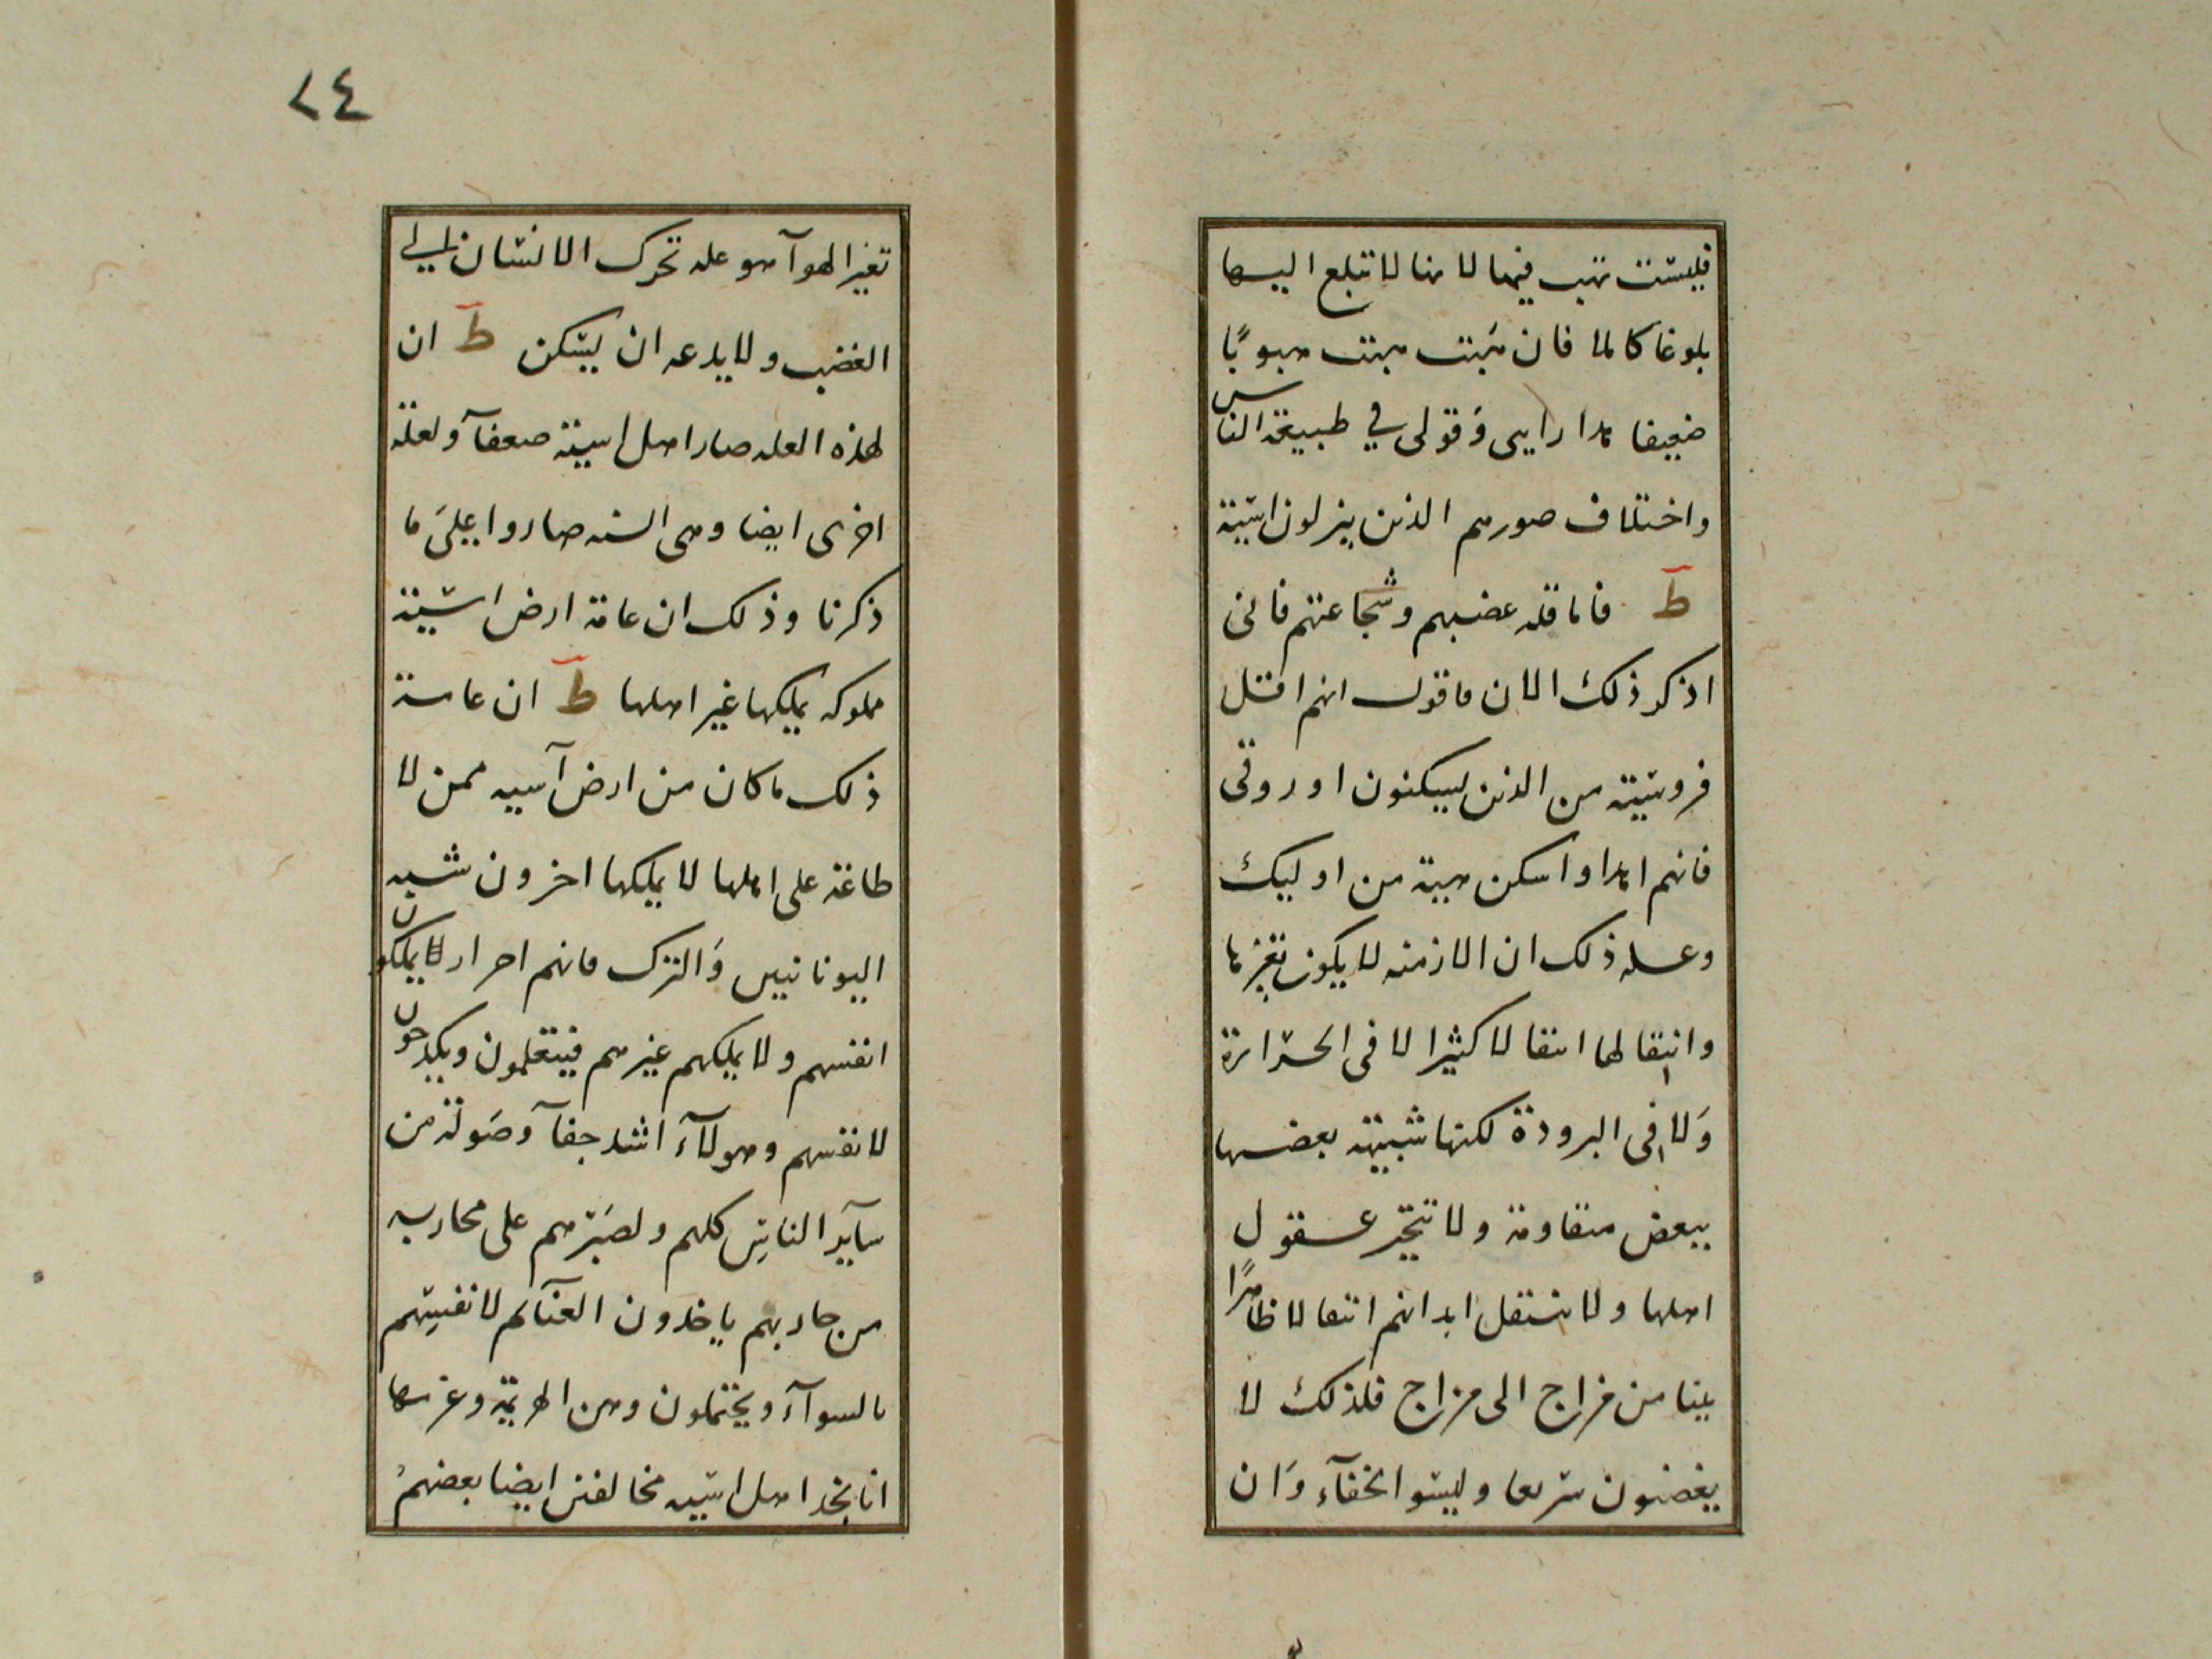 فليست تهب فيها لانها لا تبلع اليها
بلوغا كاملا فان هبت هبت هبوبًا
ضعيفا هذا رايى وَقولى في طبيعة الناس
واختلاف صورهم الذين ينزلون اسية
ط فاما قله غضبهم وشجاعتهم فانى
اذكر ذلك الان فاقول انهم اقتل
فروسية من الذين يسكنون اوروقى
فانهم اهدا واسكن هيبة من اوليك
وعله ذلك ان الازمنه لا يكون تغيرها
وانتقالها انتقالا كثيرا لا فى الحرارة
وَلا فى البرودة لكنها شبيهة بعضها
ببعض متقاومة ولا تتحير عقول
اهلها ولا تنتقل ابدانهم انتقالا ظاهرًا
بينا من مزاج الى مزاج فلذلك لا
يغضبون سريعا وليسوا بخفآء وَان
٢٤
تغير الهوآ هو عله تحرك الانسان الي
الغضب ولا يدعه ان يسكن ط ان
لهذه العله صار اهل اسية ضعفآ ولعلة
اخرى ايضا وهى السنه صاروا على ما
ذكرنا وذلك ان عامة ارض اسية
مملوكه يملكها غير اهلها ط ان عامة
ذلك ما كان من ارض آسيه ممن لا
طاغة على اهلها لا يملكها اخرون شبه
اليونانيين وَالترك فانهم احرار لا يملكون
انفسهم ولا يملكهم غيرهم فيتعلمون ويكدحون
لانفسهم وهولآء اشد جفآ وصَولة من
سآير الناس كلهم ولصَبرهم على محاربه
من حاربهم ياخذون الغنآئم لانفسهم
بالسوآء ويحتملون وهن الهزيمة وغرمها
انا نجد اهل اسيه مخالفين ايضا بعضهم